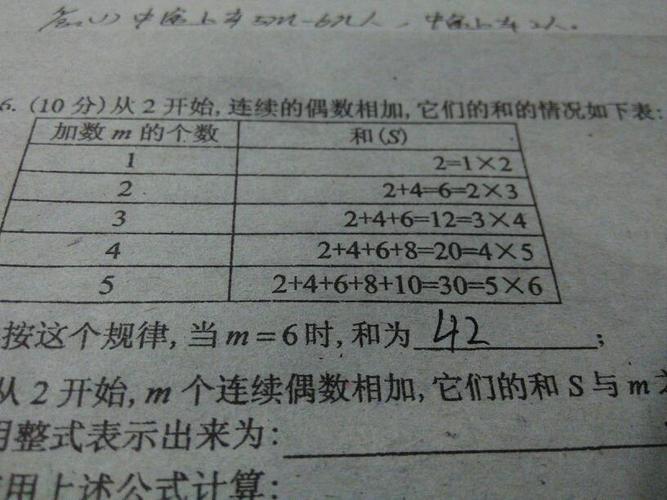 6. (10 分) 从 2 开始, 连续的偶数相加, 它们的和的情况如下表:
加数 m 的个数 和 (S)
1 2=1×2
2 2+4=6=2×3
3 2+4+6=12=3×4
4 2+4+6+8=20=4×5
5 2+4+6+8+10=30=5×6
按这个规律, 当 m = 6 时, 和为 42 ;
从 2 开始, m 个连续偶数相加, 它们的和 S 与 m
用整式表示出来为:
用上述公式计算: